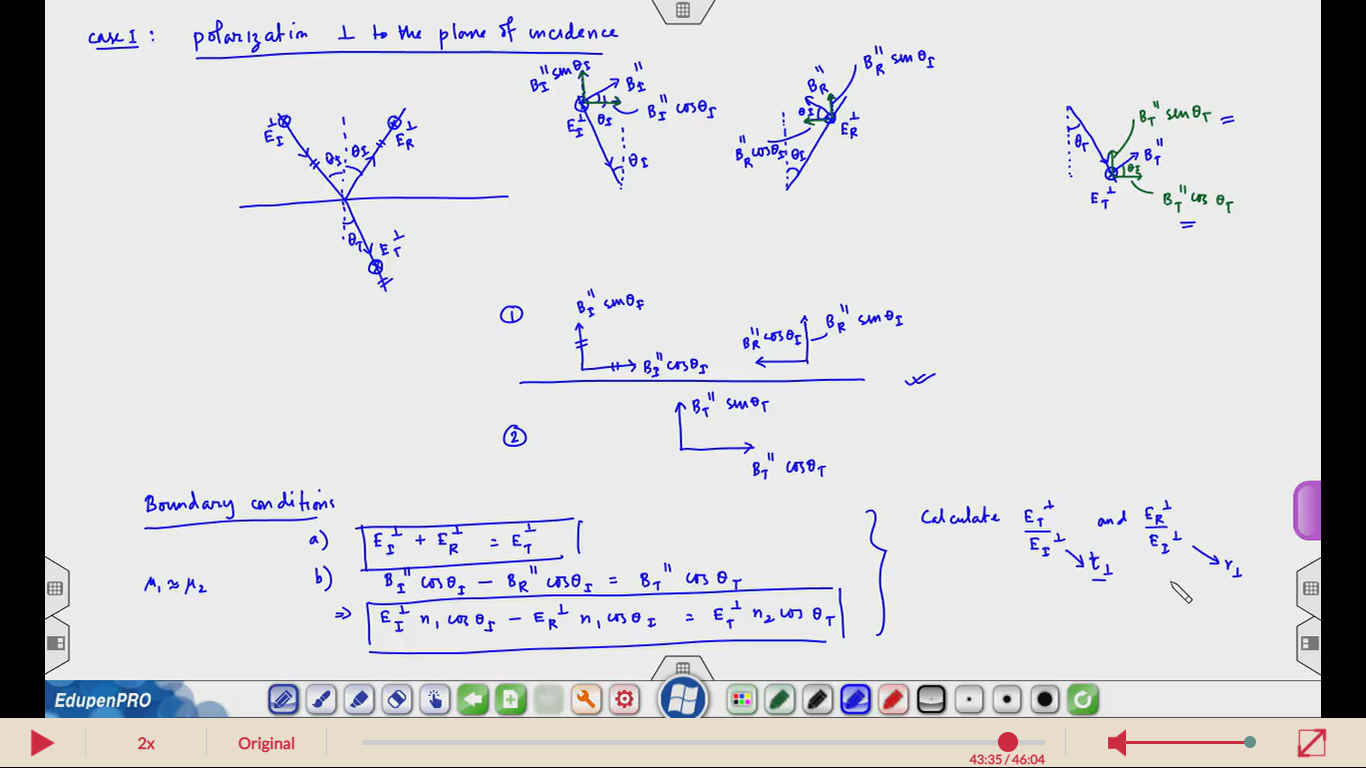 case I : polarization ⊥ to the plane of incidence
B_I^∥ sinθ_I
B_I^∥
B_I^∥ cosθ_I
E_I^⊥
θ_I
θ_I
B_R^∥
B_R^∥ sinθ_I
θ_I
E_R^⊥
B_R^∥ cosθ_I
θ_I
B_T^∥ sinθ_T =
θ_T
B_T^∥
θ_I
E_T^⊥
B_T^∥ cosθ_T
=
E_I^⊥
E_R^⊥
θ_I
θ_I
θ_T
E_T^⊥
①
B_I^∥ sinθ_I
B_I^∥ cosθ_I
B_R^∥ cosθ_I
B_R^∥ sinθ_I
②
B_T^∥ sinθ_T
B_T^∥ cosθ_T
Boundary conditions
a) E_I^⊥ + E_R^⊥ = E_T^⊥
μ₁ ≈ μ₂
b) B_I^∥ cosθ_I − B_R^∥ cosθ_I = B_T^∥ cosθ_T
⇒ E_I^⊥ n₁ cosθ_I − E_R^⊥ n₁ cosθ_I = E_T^⊥ n₂ cosθ_T
Calculate E_T^⊥/E_I^⊥ and E_R^⊥/E_I^⊥
t_⊥
r_⊥
EdupenPRO
2x
Original
43:35 / 46:04